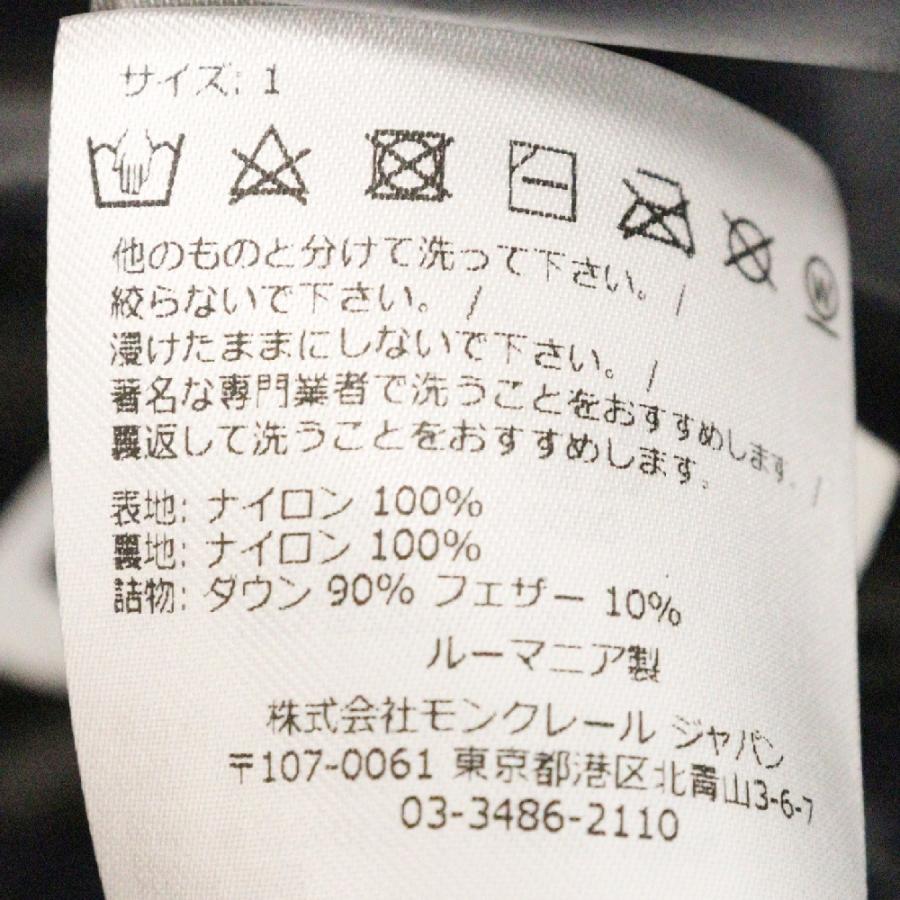 サイズ: 1
他のものと分けて洗って下さい。 /
絞らないで下さい。 /
浸けたままにしないで下さい。 /
著名な専門業者で洗うことをおすすめします。 /
裏返して洗うことをおすすめします。
表地: ナイロン 100%
裏地: ナイロン 100%
詰物: ダウン 90% フェザー 10%
ルーマニア製
株式会社モンクレール ジャパン
〒107-0061 東京都港区北青山3-6-7
03-3486-2110